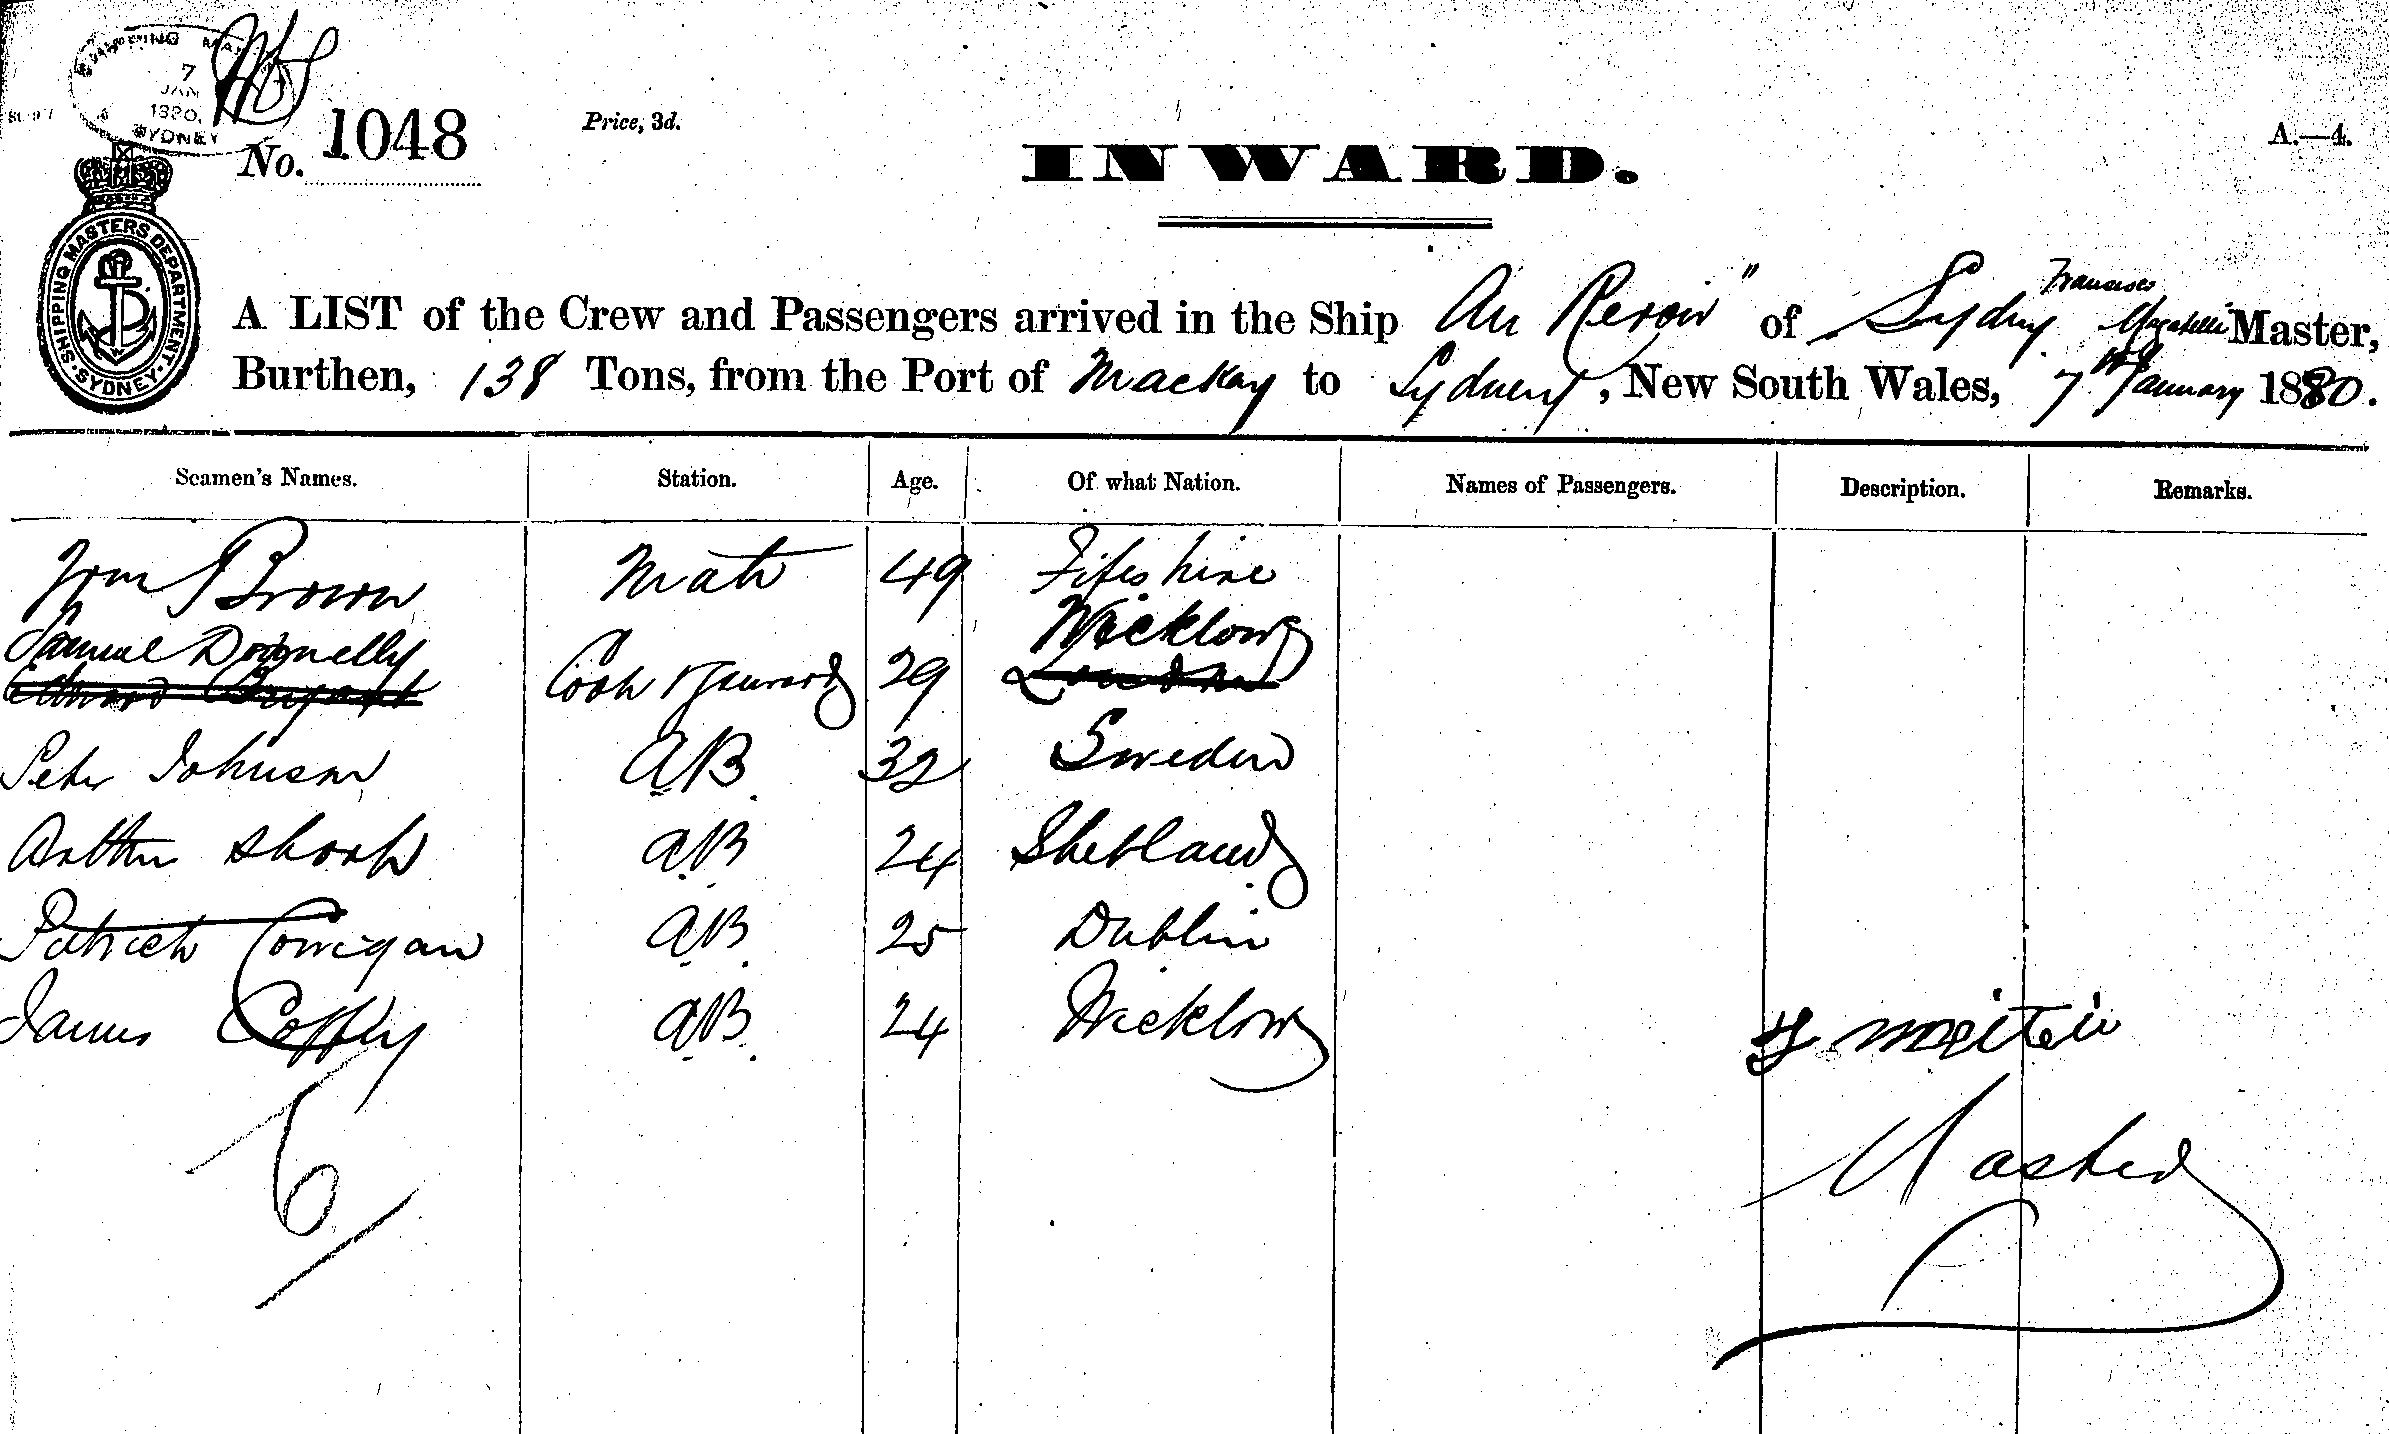 SHIPPING MASTER
7
JAN
1880.
SYDNEY
No. 1048
Price, 3d.
INWARD.
A.—4.
SHIPPING MASTERS DEPARTMENT
SYDNEY
Francisco
A LIST of the Crew and Passengers arrived in the Ship Au Revoir" of Sydney Master,
Burthen, 138 Tons, from the Port of Mackay to Sydney, New South Wales, 7th January 1880.
Seamen's Names. Station. Age. Of what Nation. Names of Passengers. Description. Remarks.
Wm Brown Mate 49 Fifeshire
Samuel Donnelly Wicklow
Edward Bryant Cook & Steward 29 London
Peter Johnson AB 32 Sweden
Arthur AB 24 Shetland
Patrick Corrigan AB 25 Dublin
James Coffey AB 24 Wicklow
6
Master